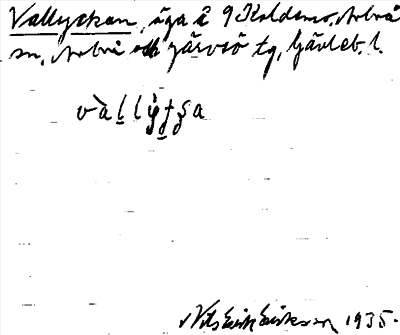 Vallyckan, äga å 9 Koldemo, Arbrå
sn, Arbrå och Järvsö tg, Gävleb. l.
vàl̠lỳt̠ʂa
Nils Erik Eriksson 1935.